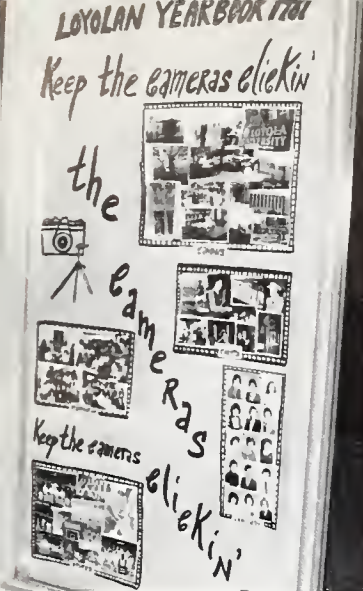 LOYOLAN YEARBOOK
Keep the cameras clickin'
LOYOLA
UNIVERSITY
the
cameras
Keep the cameras
clickin'